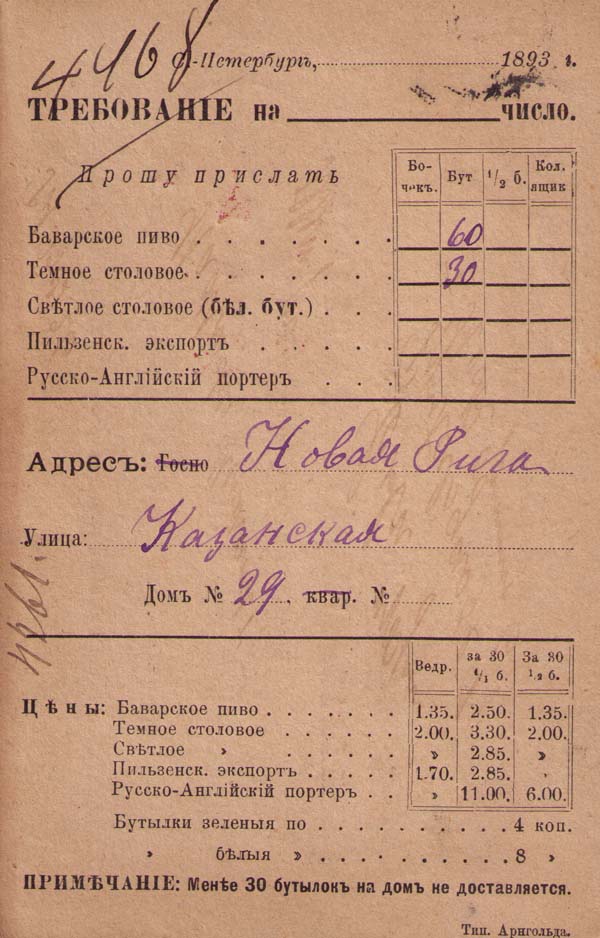 4468
С-Петербургъ, 1893 г.
ТРЕБОВАНІЕ на число.
Прошу прислать
Бо- чекъ. Бут 1/2 б. Кол. ящик
Баварское пиво 60
Темное столовое 30
Свѣтлое столовое (бѣл. бут.)
Пильзенск. экспортъ
Русско-Англійскій портеръ
Адресъ: Госпо Новая Рига
Улица: Казанская
Домъ № 29. квар. №
Ведр. за 30 1/1 б. За 30 1/2 б.
Цѣны: Баварское пиво 1.35. 2.50. 1.35.
Темное столовое 2.00. 3.30. 2.00.
Свѣтлое » » 2.85. »
Пильзенск. экспортъ 1.70. 2.85.
Русско-Англійскій портеръ » 11.00. 6.00.
Бутылки зеленыя по 4 коп.
» бѣлыя » 8 »
ПРИМѢЧАНІЕ: Менѣе 30 бутылокъ на домъ не доставляется.
Тип. Арнгольда.